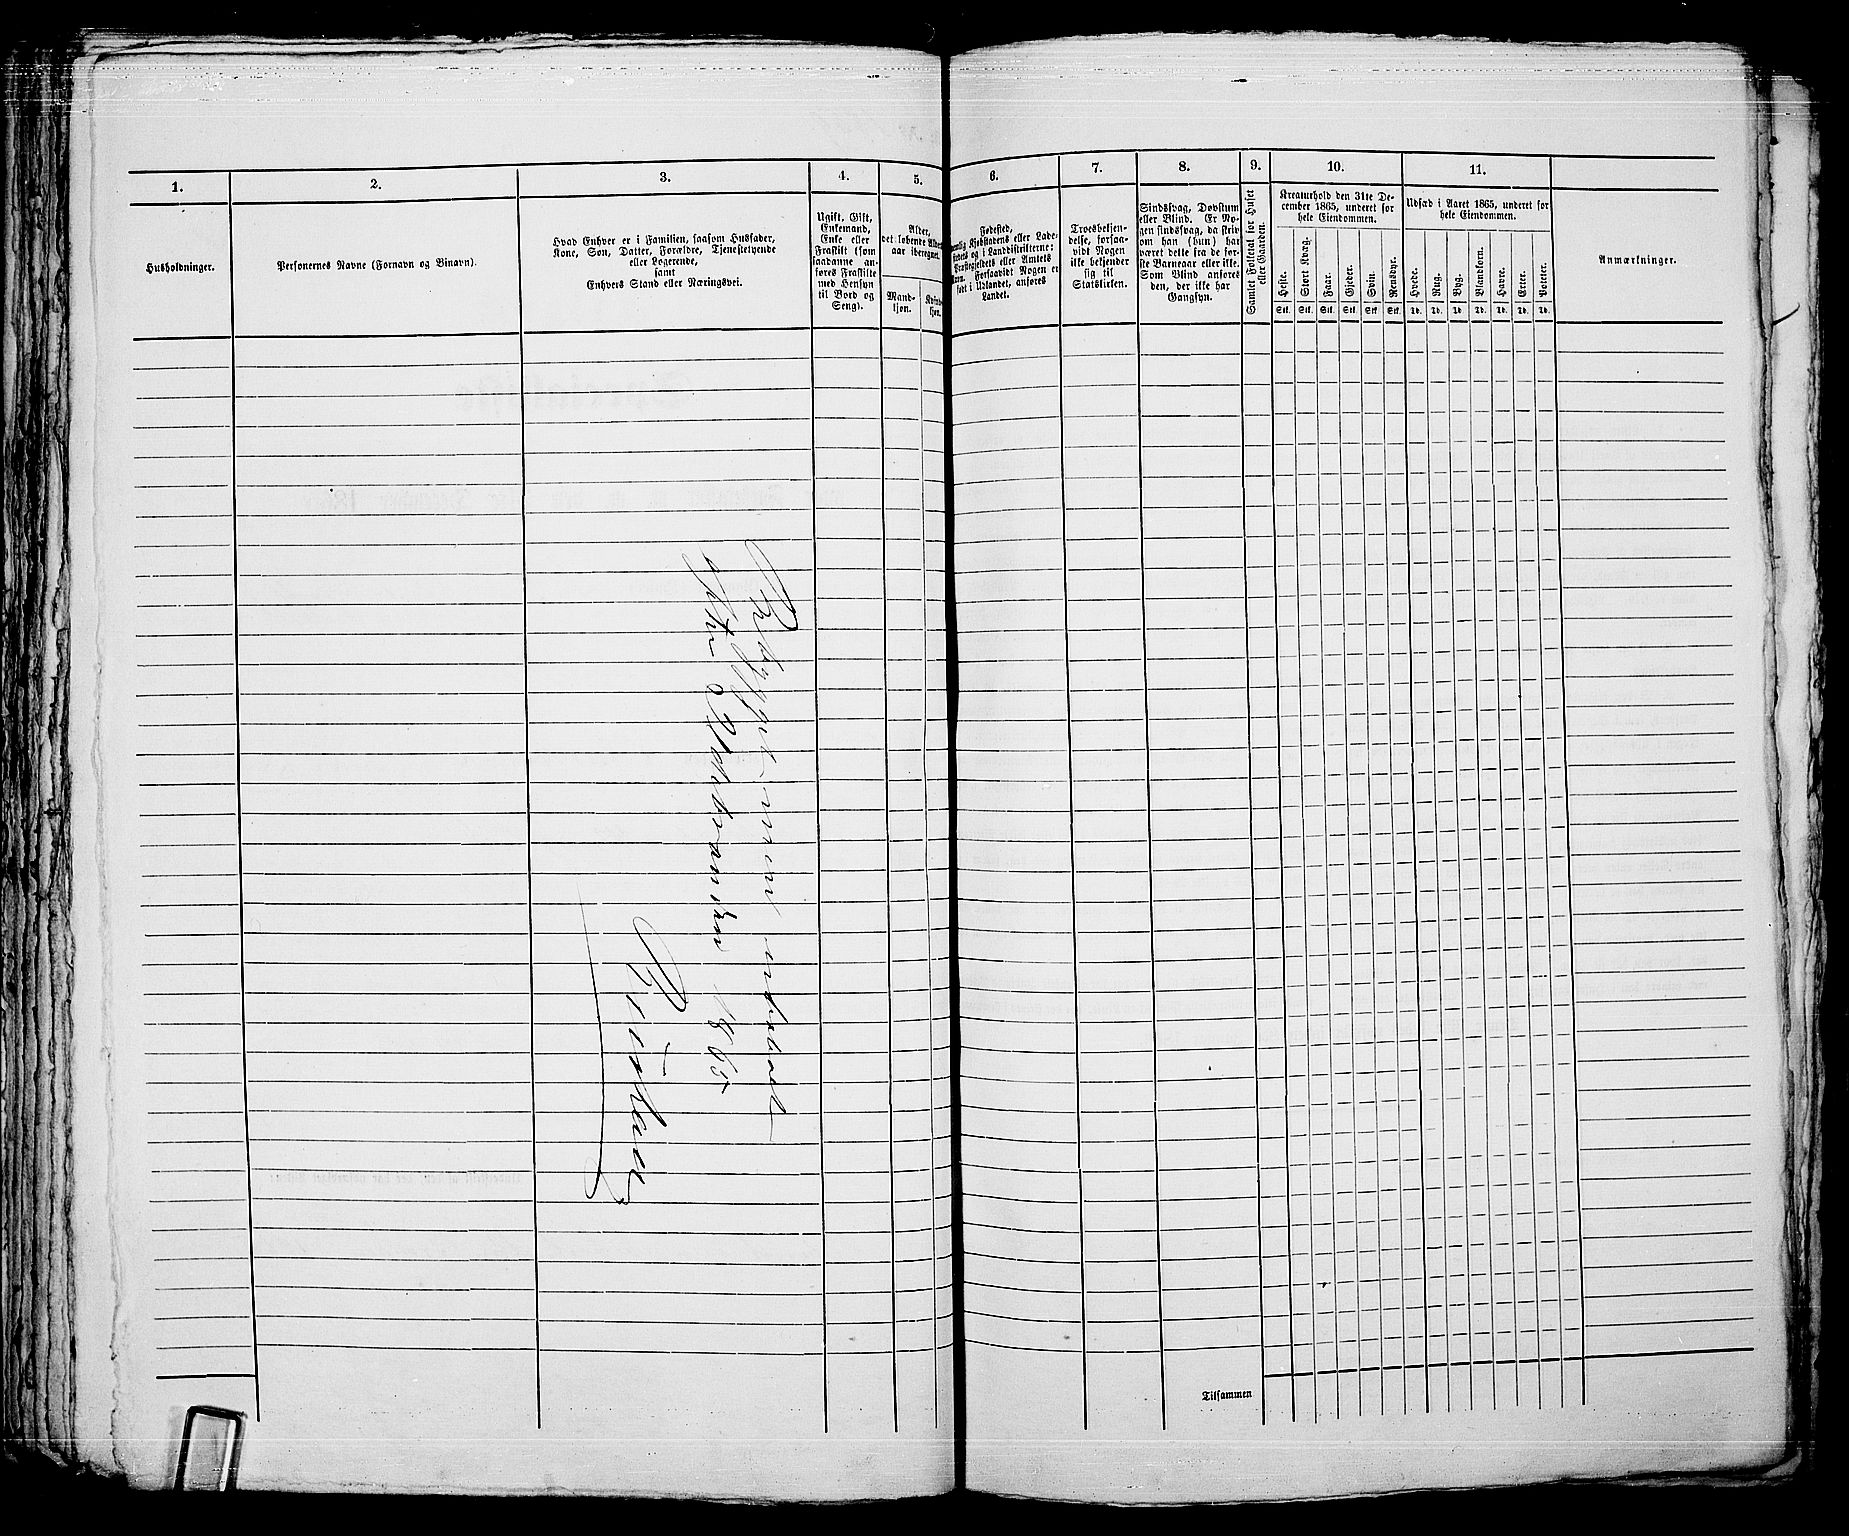 1.
Husholdninger.
2.
Personernes Navne (Fornavn og Binavn).
3.
Hvad Enhver er i Familien, saasom Husfader,
Kone, Søn, Datter, Forældre, Tjenestetyende
eller Logerende,
samt
Enhvers Stand eller Næringsvei.
4.
Ugift, Gift,
Enkemand,
Enke eller
Fraskilt (som
saadanne an-
føres Fraskilte
med Hensyn
til Bord og
Seng).
5.
Alder,
det løbende Alders-
aar iberegnet.
Mand-
kjøn.
Kvinde-
kjøn.
6.
Fødested,
nemlig Kjøbstadens eller Lade-
stedets og i Landdistrikterne:
Præstegjeldets eller Amtets
Navn. Forsaavidt Nogen er
født i Udlandet, anføres
Landet.
7.
Troesbekjen-
delse, forsaa-
vidt Nogen
ikke bekjender
sig til
Statskirken.
8.
Sindssvag, Døvstum
eller Blind. Er No-
gen sindssvag, da skriv
om han (hun) har
været dette fra de før-
ste Barneaar eller ikke.
Som Blind anføres
den, der ikke har
Gangsyn.
9.
Samlet Folketal for Huset
eller Gaarden.
10.
Kreaturhold den 31te De-
cember 1865, underet for
hele Eiendommen.
Heste.
Stort Kvæg.
Faar.
Gjeder.
Svin.
Rensdyr.
Stk. Stk. Stk. Stk. Stk. Stk.
11.
Udsæd i Aaret 1865, underet for
hele Eiendommen.
Hvede.
Rug.
Byg.
Blandkorn.
Havre.
Erter.
Poteter.
Td. Td. Td. Td. Td. Td. Td.
Anmærkninger.
Bebygget men ubeboet
1865
Tilsammen